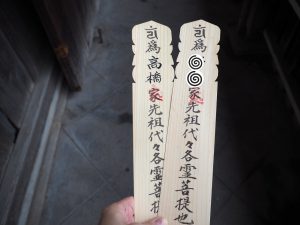 為高橋家先祖代々各霊菩提
為家先祖代々各霊菩提也